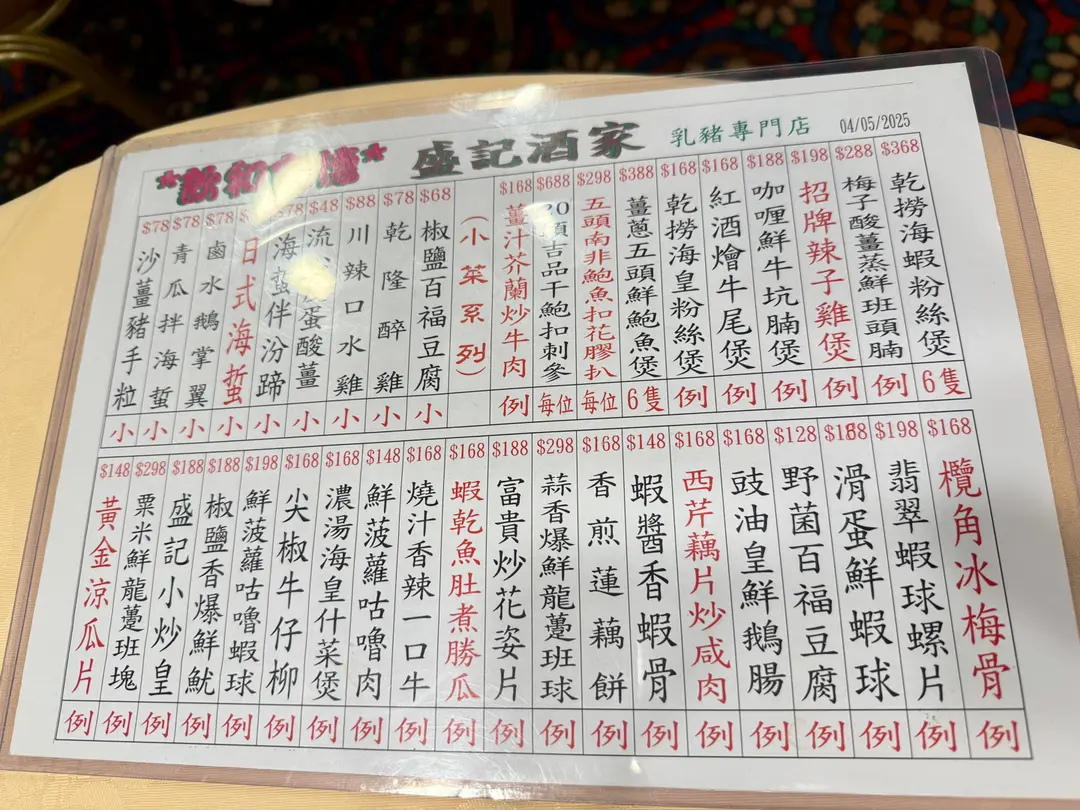 盛記酒家
乳豬專門店
04/05/2025
$368 乾撈海蝦粉絲煲 6隻
$288 梅子酸薑蒸鮮班頭腩 例
$198 招牌辣子雞煲 例
$188 咖喱鮮牛坑腩煲 例
$168 紅酒燴牛尾煲 例
$168 乾撈海皇粉絲煲 例
$388 薑蔥五頭鮮鮑魚煲 6隻
$298 五頭南非鮑魚扣花膠扒 每位
$688 20頭吉品干鮑扣刺參 每位
$168 薑汁芥蘭炒牛肉 例
(小菜系列)
$68 椒鹽百福豆腐 小
$78 乾隆醉雞 小
$88 川辣口水雞 小
$48 流蛋酸薑 小
$78 海蜇伴汾蹄 小
日式海蜇 小
鹵水鵝掌翼 小
$78 青瓜拌海蜇 小
$78 沙薑豬手粒 小
$168 欖角冰梅骨 例
$198 翡翠蝦球螺片 例
$168 滑蛋鮮蝦球 例
$128 野菌百福豆腐 例
$168 豉油皇鮮鵝腸 例
$168 西芹藕片炒咸肉 例
$148 蝦醬香蝦骨 例
$168 香煎蓮藕餅 例
$298 蒜香爆鮮龍躉班球 例
$188 富貴炒花姿片 例
$168 蝦乾魚肚煮勝瓜 例
$168 燒汁香辣一口牛 例
$148 鮮菠蘿咕嚕肉 例
$168 濃湯海皇什菜煲 例
$168 尖椒牛仔柳 例
$198 鮮菠蘿咕嚕蝦球 例
$188 椒鹽香爆鮮魷 例
$188 盛記小炒皇 例
$298 粟米鮮龍躉班塊 例
$148 黃金涼瓜片 例